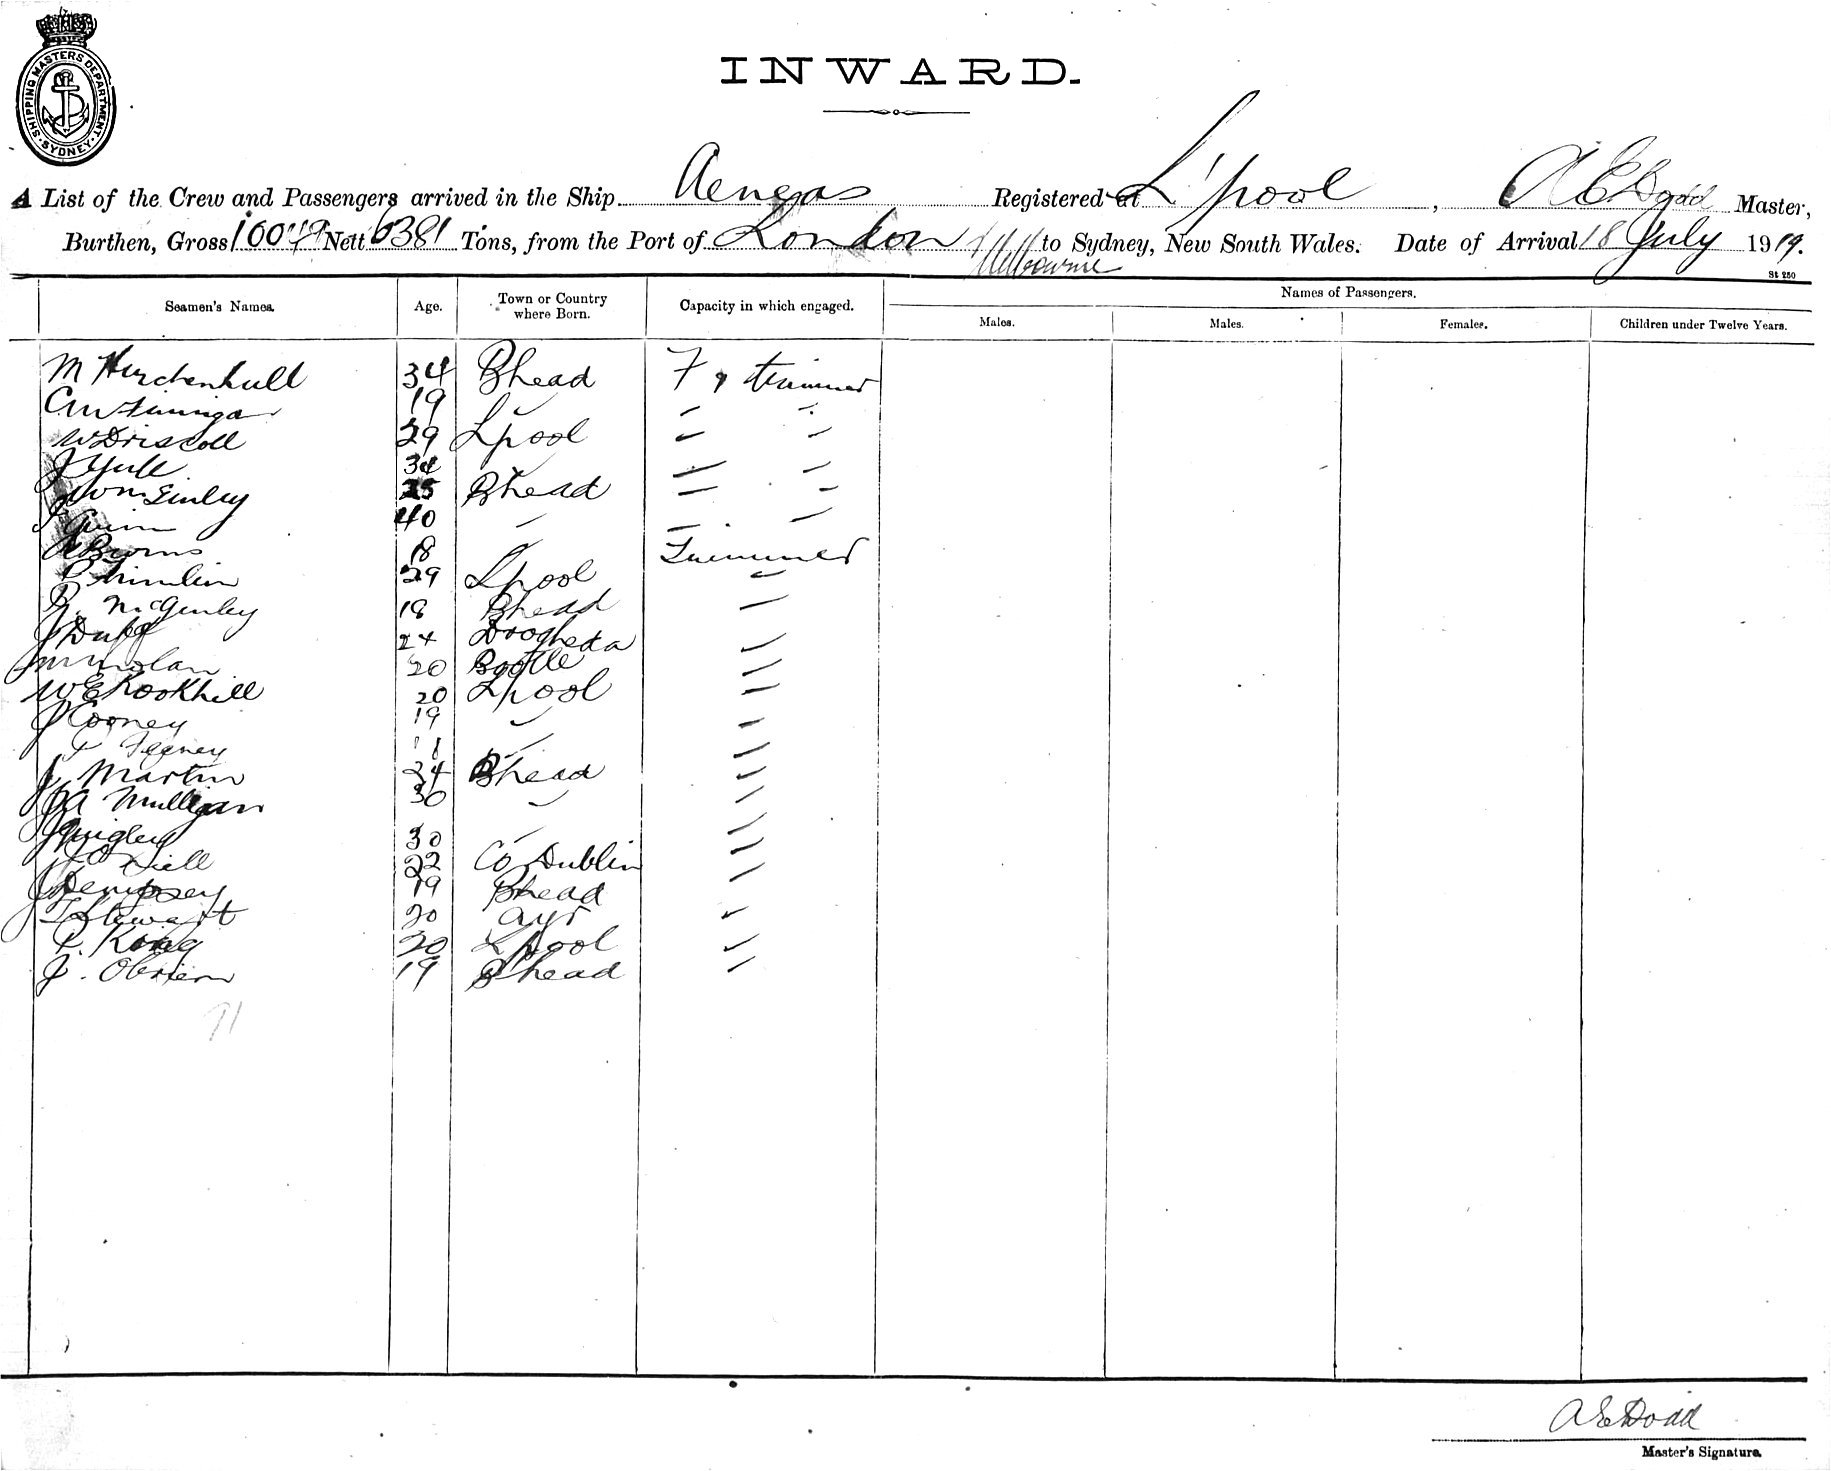 SHIPPING MASTERS DEPARTMENT · SYDNEY ·
INWARD.
A List of the Crew and Passengers arrived in the Ship Aeneas Registered at L'pool, A E Dodd Master,
Burthen, Gross 10049 Nett 6381 Tons, from the Port of London Melbourne to Sydney, New South Wales. Date of Arrival 18 July 1919.
St 250
Seamen's Names. Age. Town or Country where Born. Capacity in which engaged. Names of Passengers.
Males. Males. Females. Children under Twelve Years.
M 34 Bhead F & trimmer
19 " " "
W Driscoll 29 Lpool " "
J Yull 34 " " "
J W McGinley 25 Bhead " "
40 " " "
A Burns 18 " Trimmer
29 Lpool "
J. McGinley 18 Bhead "
J Duff 24 Drogheda "
20 Bootle "
W E Rookhill 20 Lpool "
J Cooney 19 " "
Feeney 18 " "
J Martin 24 Bhead "
J A Mulligan 30 " "
J Quigley 30 " "
22 Co Dublin "
J Dempsey 19 Bhead "
T Stewart 20 Ayr "
P. King 20 Lpool "
J. Obrien 19 B'head "
71
A E Dodd
Master's Signature.